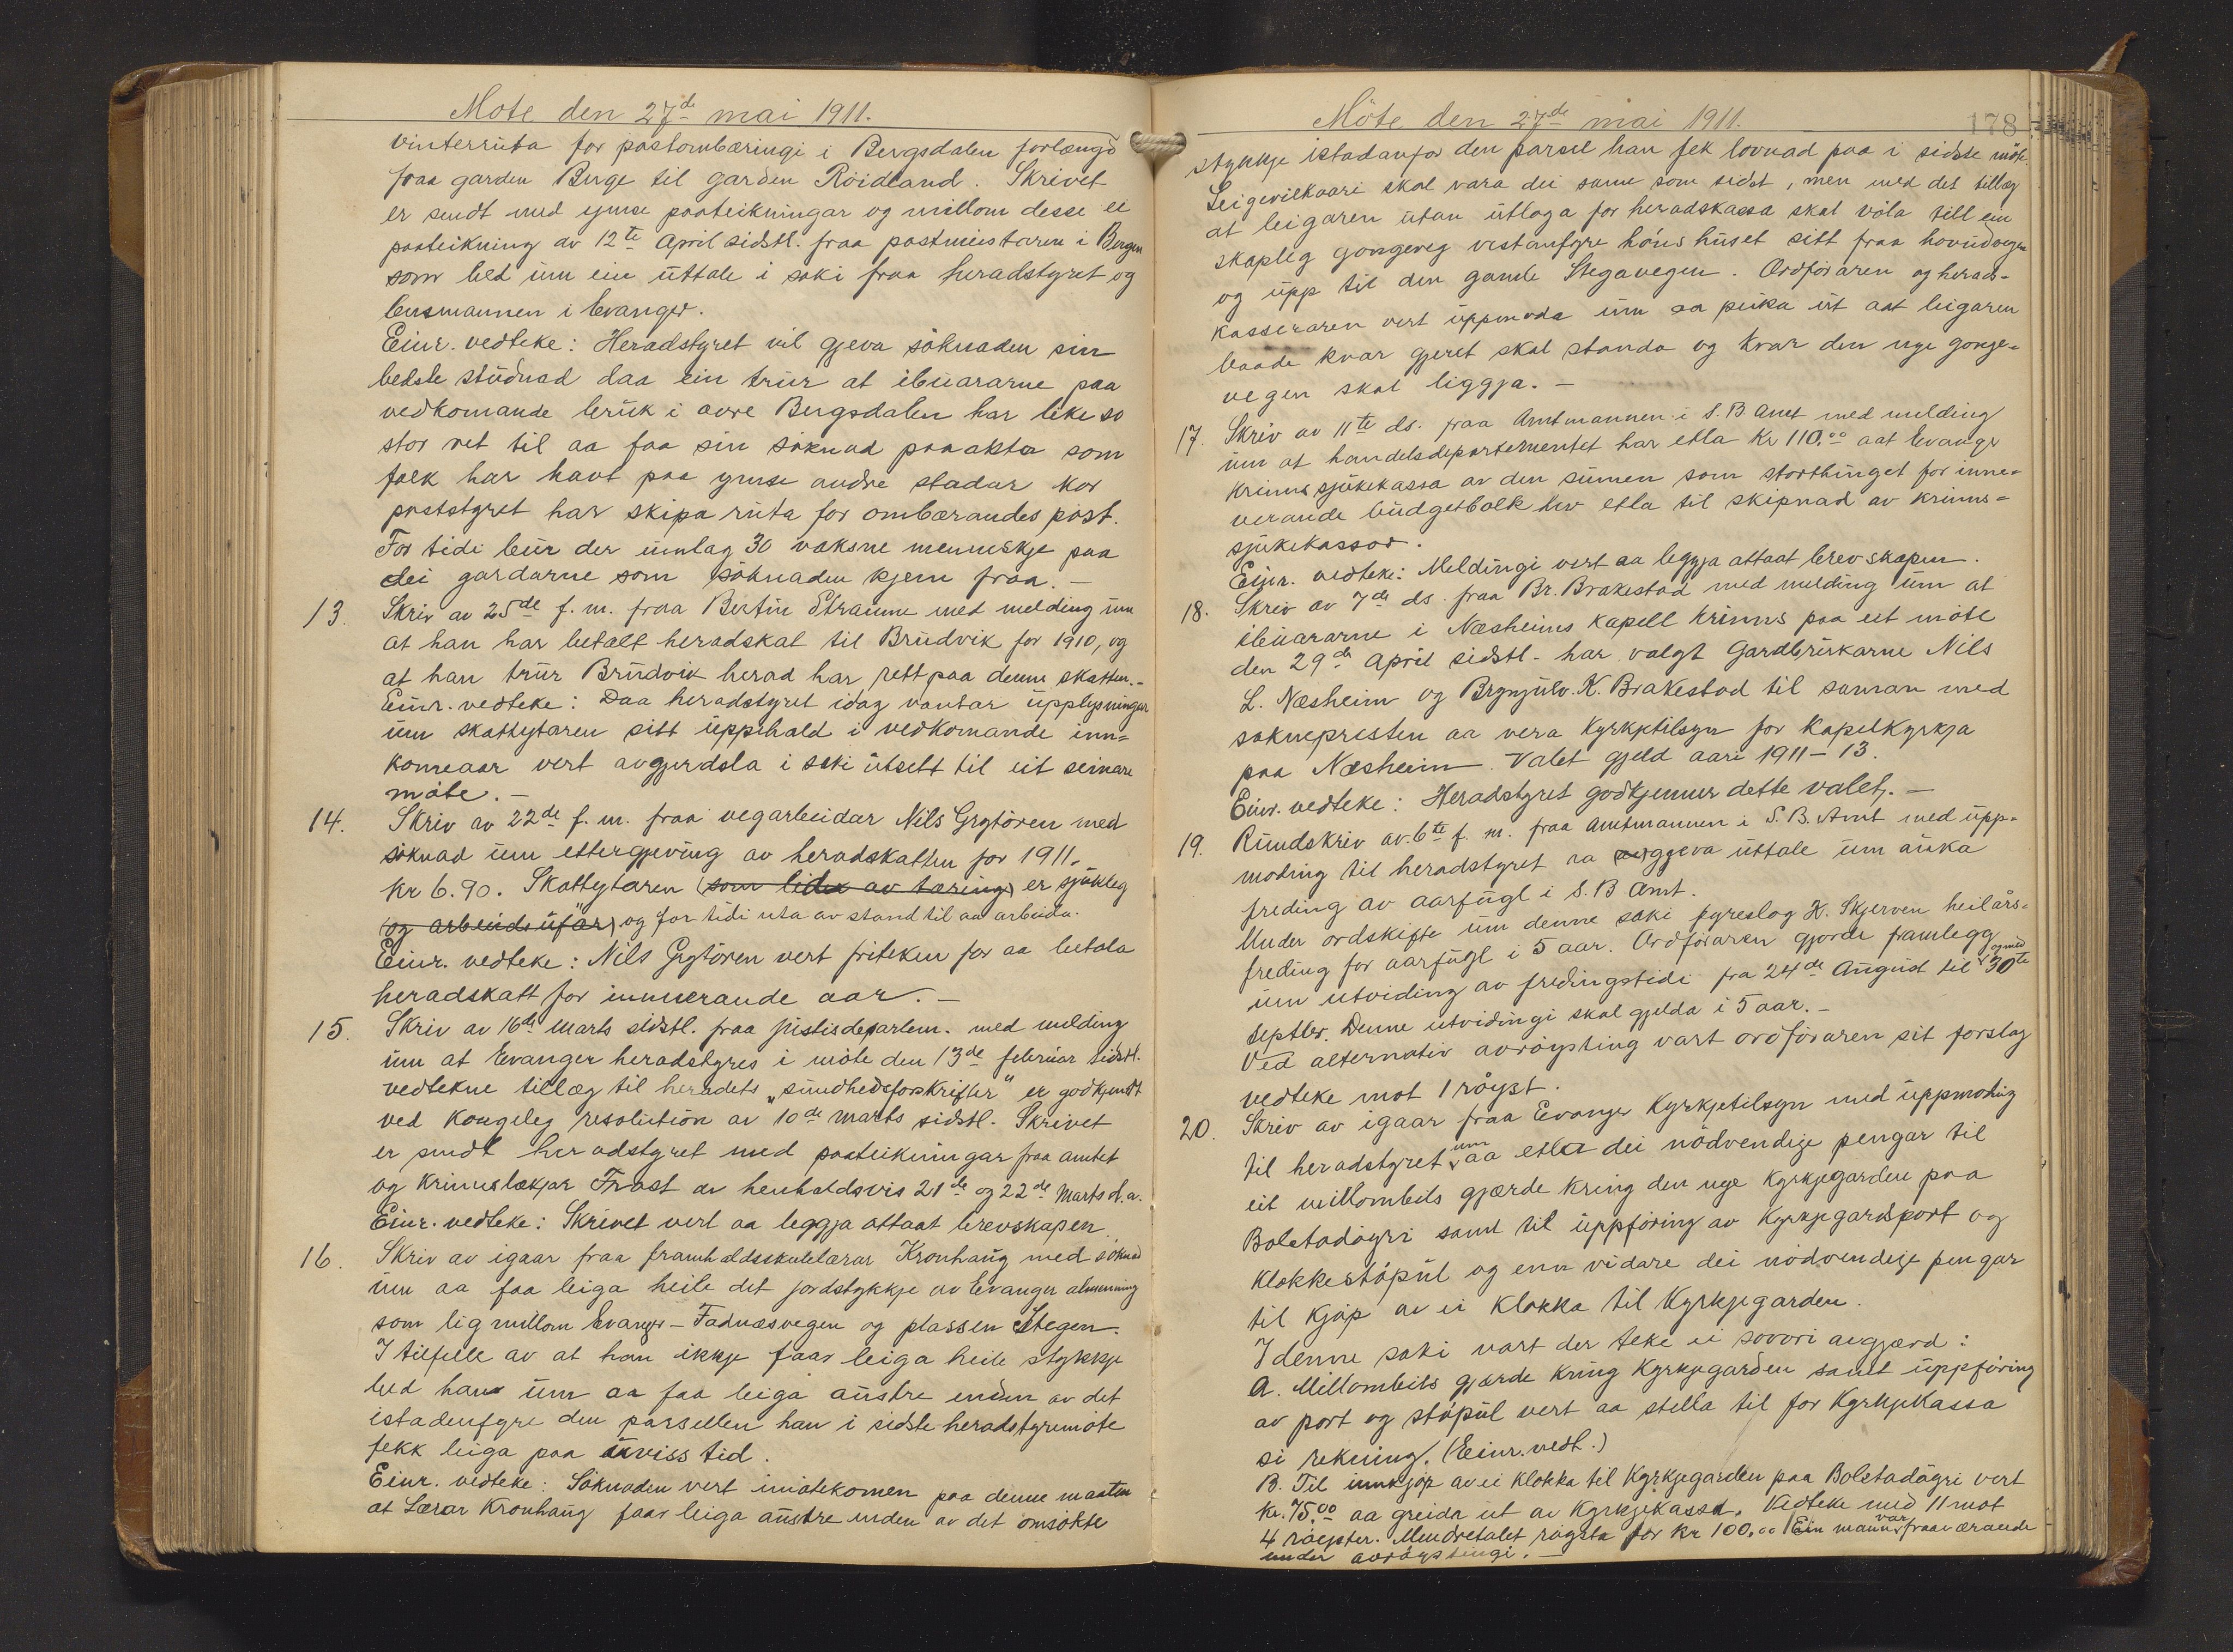 Møte den 27de mai 1911.
vinterruta for postombæringi i Bergsdalen forlængd
fraa garden Berge til garden Röidland. Skrivet
er sendt med ymse paateikningar og millom desse ei
paateikning av 12te April sidstl. fraa postmeistaren i Bergen
som bed um ein uttale i saki fraa heradstyret og
lensmannen i Evanger.
Einr. vedteke: Heradstyret vil gjeva söknaden sin
bedste studnad daa ein trur at ibuararne paa
vedkomande bruk i övre Bergsdalen har like so
stor ret til aa faa sin söknad paaakta som
folk har havt paa ymse andre stadar kor
poststyret har skipa ruta for ombærandes post.
For tidi bur der umlag 30 vaksne menneskje paa
dei gardarne som söknaden kjem fraa. –
13. Skriv av 25de f. m. fraa Bertin Straume med melding um
at han har betalt heradskat til Brudvik for 1910, og
at han trur Brudvik herad har rett paa denne skatten. –
Einr. vedteke: Daa heradstyret idag vantar upplysningar
um skattytaren sitt uppihald i vedkomande inn=
komeaar vert avgjerdsla i saki utsett til eit seinare
möte. –
14. Skriv av 22de f. m. fraa vegarbeidar Nils Grytören med
söknad um ettergjeving av heradskatten for 1911.
Kr 6.90. Skattytaren (som lider av tæring) er sjukleg
(og arbeidsufør) og for tidi uta av stand til aa arbeida.
Einr. vedteke: Nils Grytören vert friteken for aa betala
heradskatt for innverande aar. –
15. Skriv av 16de Marts sidstl. fraa justisdepartem. med melding
um at Evanger heradstyres i möte den 13de februar sidstl.
vedtekne tillæg til heradets „sundhedsforskrifter" er godkjendt
ved Kongeleg resolution av 10de Marts sidstl. Skrivet
er sendt heradstyret med paateikningar fraa amtet
og Krinslækjar Frost av henholdsvis 21de og 22de Marts d. a.
Einr. vedteke: Skrivet vert aa leggja attaat brevskapen.
16. Skriv av igaar fraa framhaldsskulelærar Kronhaug med söknad
um aa faa leiga heile det jordstykkje av Evanger almenning
som lig millom Evanger – Fadnæsvegen og plassen Stegen.
I tilfelle av at han ikkje faar leiga heile stykkje
bed han um aa faa leiga austre enden av det
istadenfyre den parsellen han i sidste heradstyremøte
fekk leiga paa uviss tid.
Einr. vedteke: Söknaden vert imötekomen paa denne maaten
at Lærar Kronhaug faar leiga austre enden av det omsökte
Möte den 27de mai 1911. 178
stykkje istadanfor den parsel han fek lovnad paa i sidste möte.
Leigevilkaari skal vara dei same som sidst, men med det tillæg
at leigaren utan utlaga for heradskassa skal völa till ein
skapleg gongeveg vestanfyre hönshuset sitt fraa hovudvegen
og upp til den gamle Stegavegen. Ordföraren og herads=
kasseraren vert uppmoda um aa peika ut aat leigaren
baade kvar gjeret skal standa og kvar den nye gonge=
vegen skal liggja. –
17. Skriv av 11te ds. fraa Amtmannen i S. B. Amt med melding
um at handelsdepartementet har etla Kr 110.00 aat Evanger
Krinssjukekassa av den sumen som storthinget for inne=
verande budgetbolk hev etla til skipnad av krins=
sjukekassor.
Einr. vedteke: Meldingi vert aa leggja attaat brevskapen.
18. Skriv av 7de ds. fraa Br. Brakestad med melding um at
ibuararne i Næsheims Kapell krins paa eit möte
den 29de April sidstl. har valgt Gardbrukarne Nils
L. Næsheim og Brynjulv. K. Brakestad til saman med
soknepresten aa vera Kyrkjetilsyn for Kapelkyrkja
paa Næsheim. Valet gjeld aari 1911 – 13.
Einr. vedteke: Heradstyret godkjenner dette valet. –
19. Rundskriv av 6te f. m. fraa Amtmannen i S. B. Amt med upp=
moding til heradstyret aa gjeva uttale um auka
freding av aarfugl i S. B. Amt.
Under ordskifte um denne saki fyreslog K. Skjerven heilårs=
freding for aarfugl i 5 aar. Ordföraren gjorde framlegg
um utviding av fredingstidi fra 24de August til og med 30te
Septbr. Denne utvidingi skal gjelda i 5 aar. –
Ved alternativ avröysting vart ordföraren sit forslag
vedteke mot 1 röyst.
20. Skriv av igaar fraa Evanger Kyrkjetilsyn med uppmoding
til heradstyret um aa etla dei nödvendige pengar til
eit millombils gjærde kring den nye Kyrkjegarden paa
Bolstadöyri samt til uppföring av Kyrkjegardsport og
klokkestöpul og enn vidare dei nödvendige pengar
til kjöp av ei klokka til Kyrkjegarden.
I denne saki vart der teke ei sovori avgjærd:
A. Millombils gjærde kring Kyrkjegarden samt uppföring
av port og stöpul vert aa stella til for Kyrkjekassa
si rekning. (Einr. vedt.)
B. Til innkjöp av ei klokka til Kyrkjegarden paa Bolstadöyri vert
kr. 75.00 aa greida ut av Kyrkjekassa. Vedteke med 11 mot
4 röyster. Mindretalet röysta for Kr 100.00 Ein mann var fraaværande
under avröystingi. –